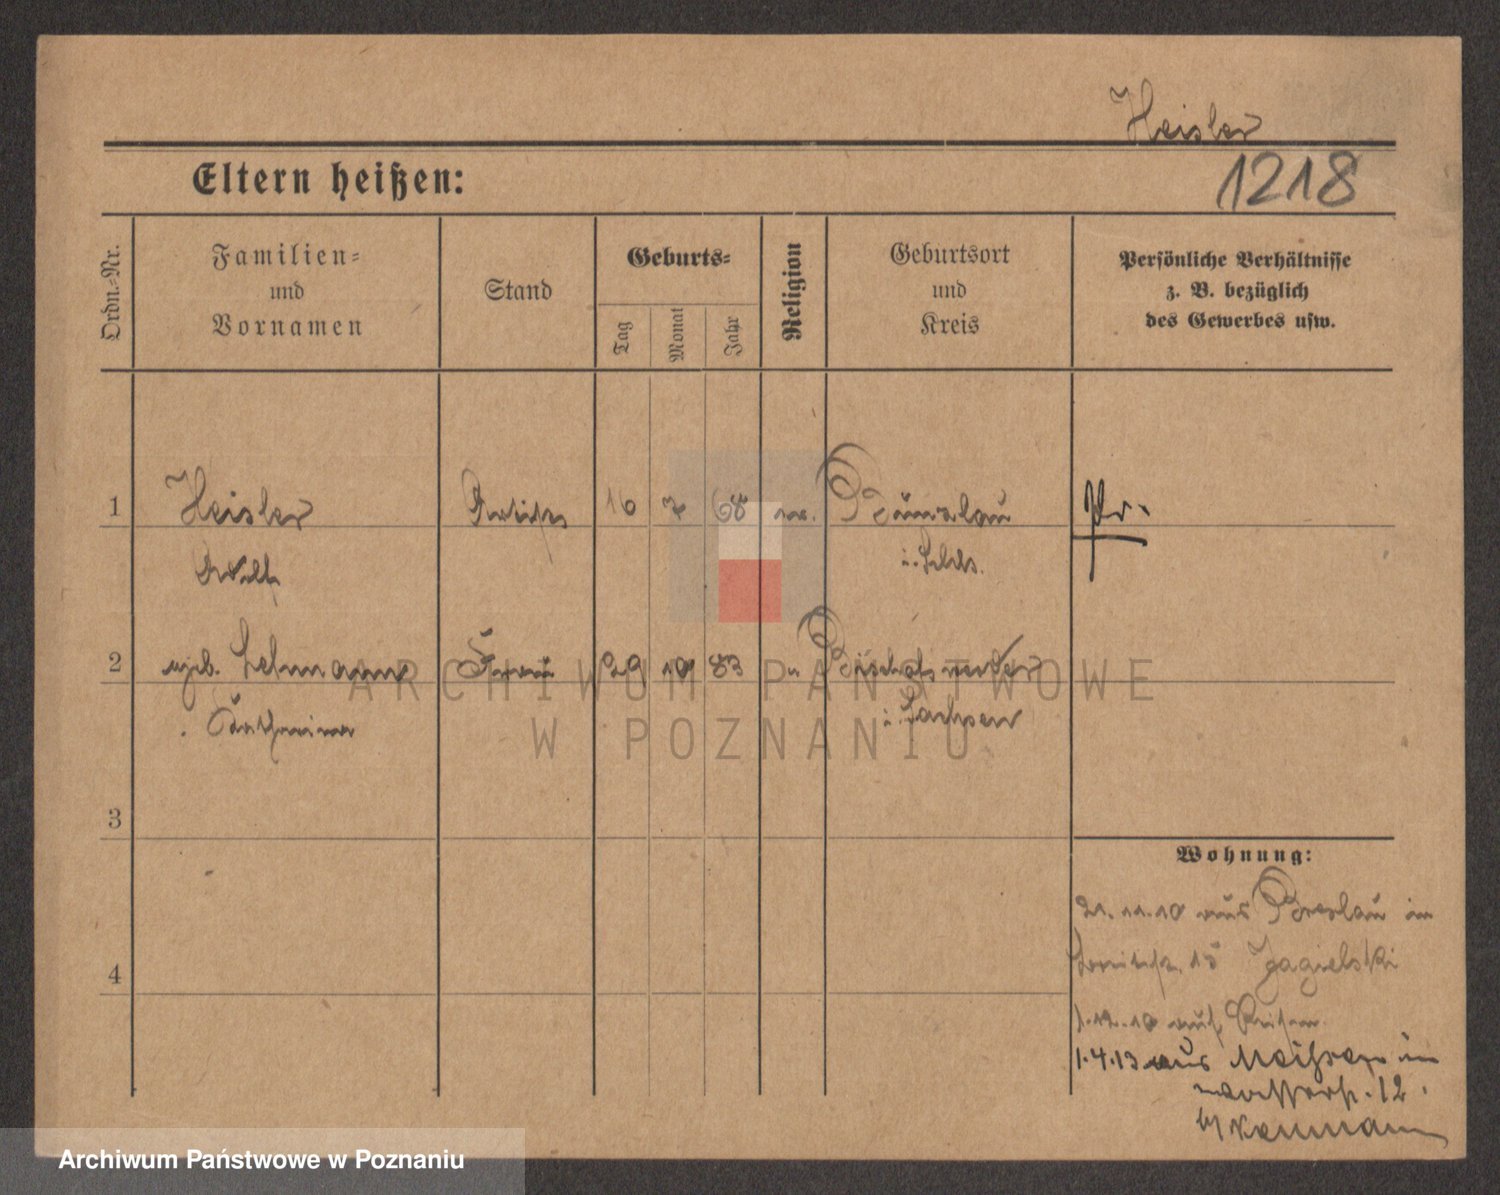 Heisler
1218
Eltern heißen:
Ordn.-Nr.
Familien-
und
Vornamen
Stand
Geburts-
Tag
Monat
Jahr
Religion
Geburtsort
und
Kreis
Persönliche Verhältnisse
z. B. bezüglich
des Gewerbes usw.
1
Heisler
Artist
16
7
68
ev.
Bunzlau
Pr.
i. Schls.
2
geb. Lehmann
Frau
29
10
83
Bischofswerda
Katharina
i. Sachsen
3
4
Wohnung:
21.11.10 aus Breslau in
15 Jagielski
1.12.10 auf Reisen
1.4.13 aus Meissen in
12.
ARCHIWUM PAŃSTWOWE
W POZNANIU
Archiwum Państwowe w Poznaniu